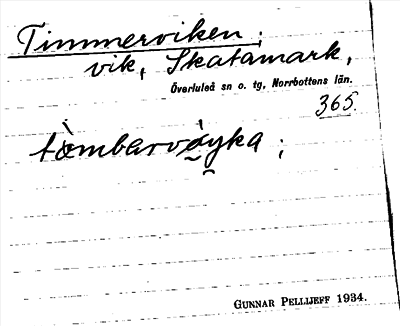 Timmerviken;
vik, Skatamark,
Överluleå sn o. tg, Norrbottens län.
365.
tæ̀mbarvá̯yka̯ ;
GUNNAR PELLIJEFF 1934.